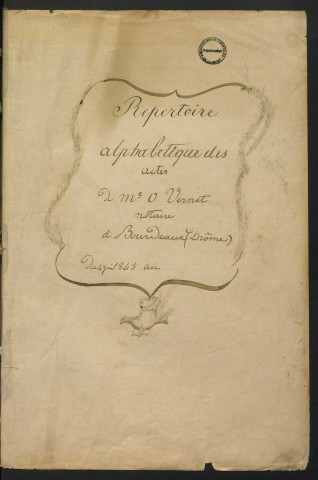 Répertoire
alphabétique des
actes
De Me O. Vernet
notaire
à Bourdeaux (Drôme)
Depuis 1843 au